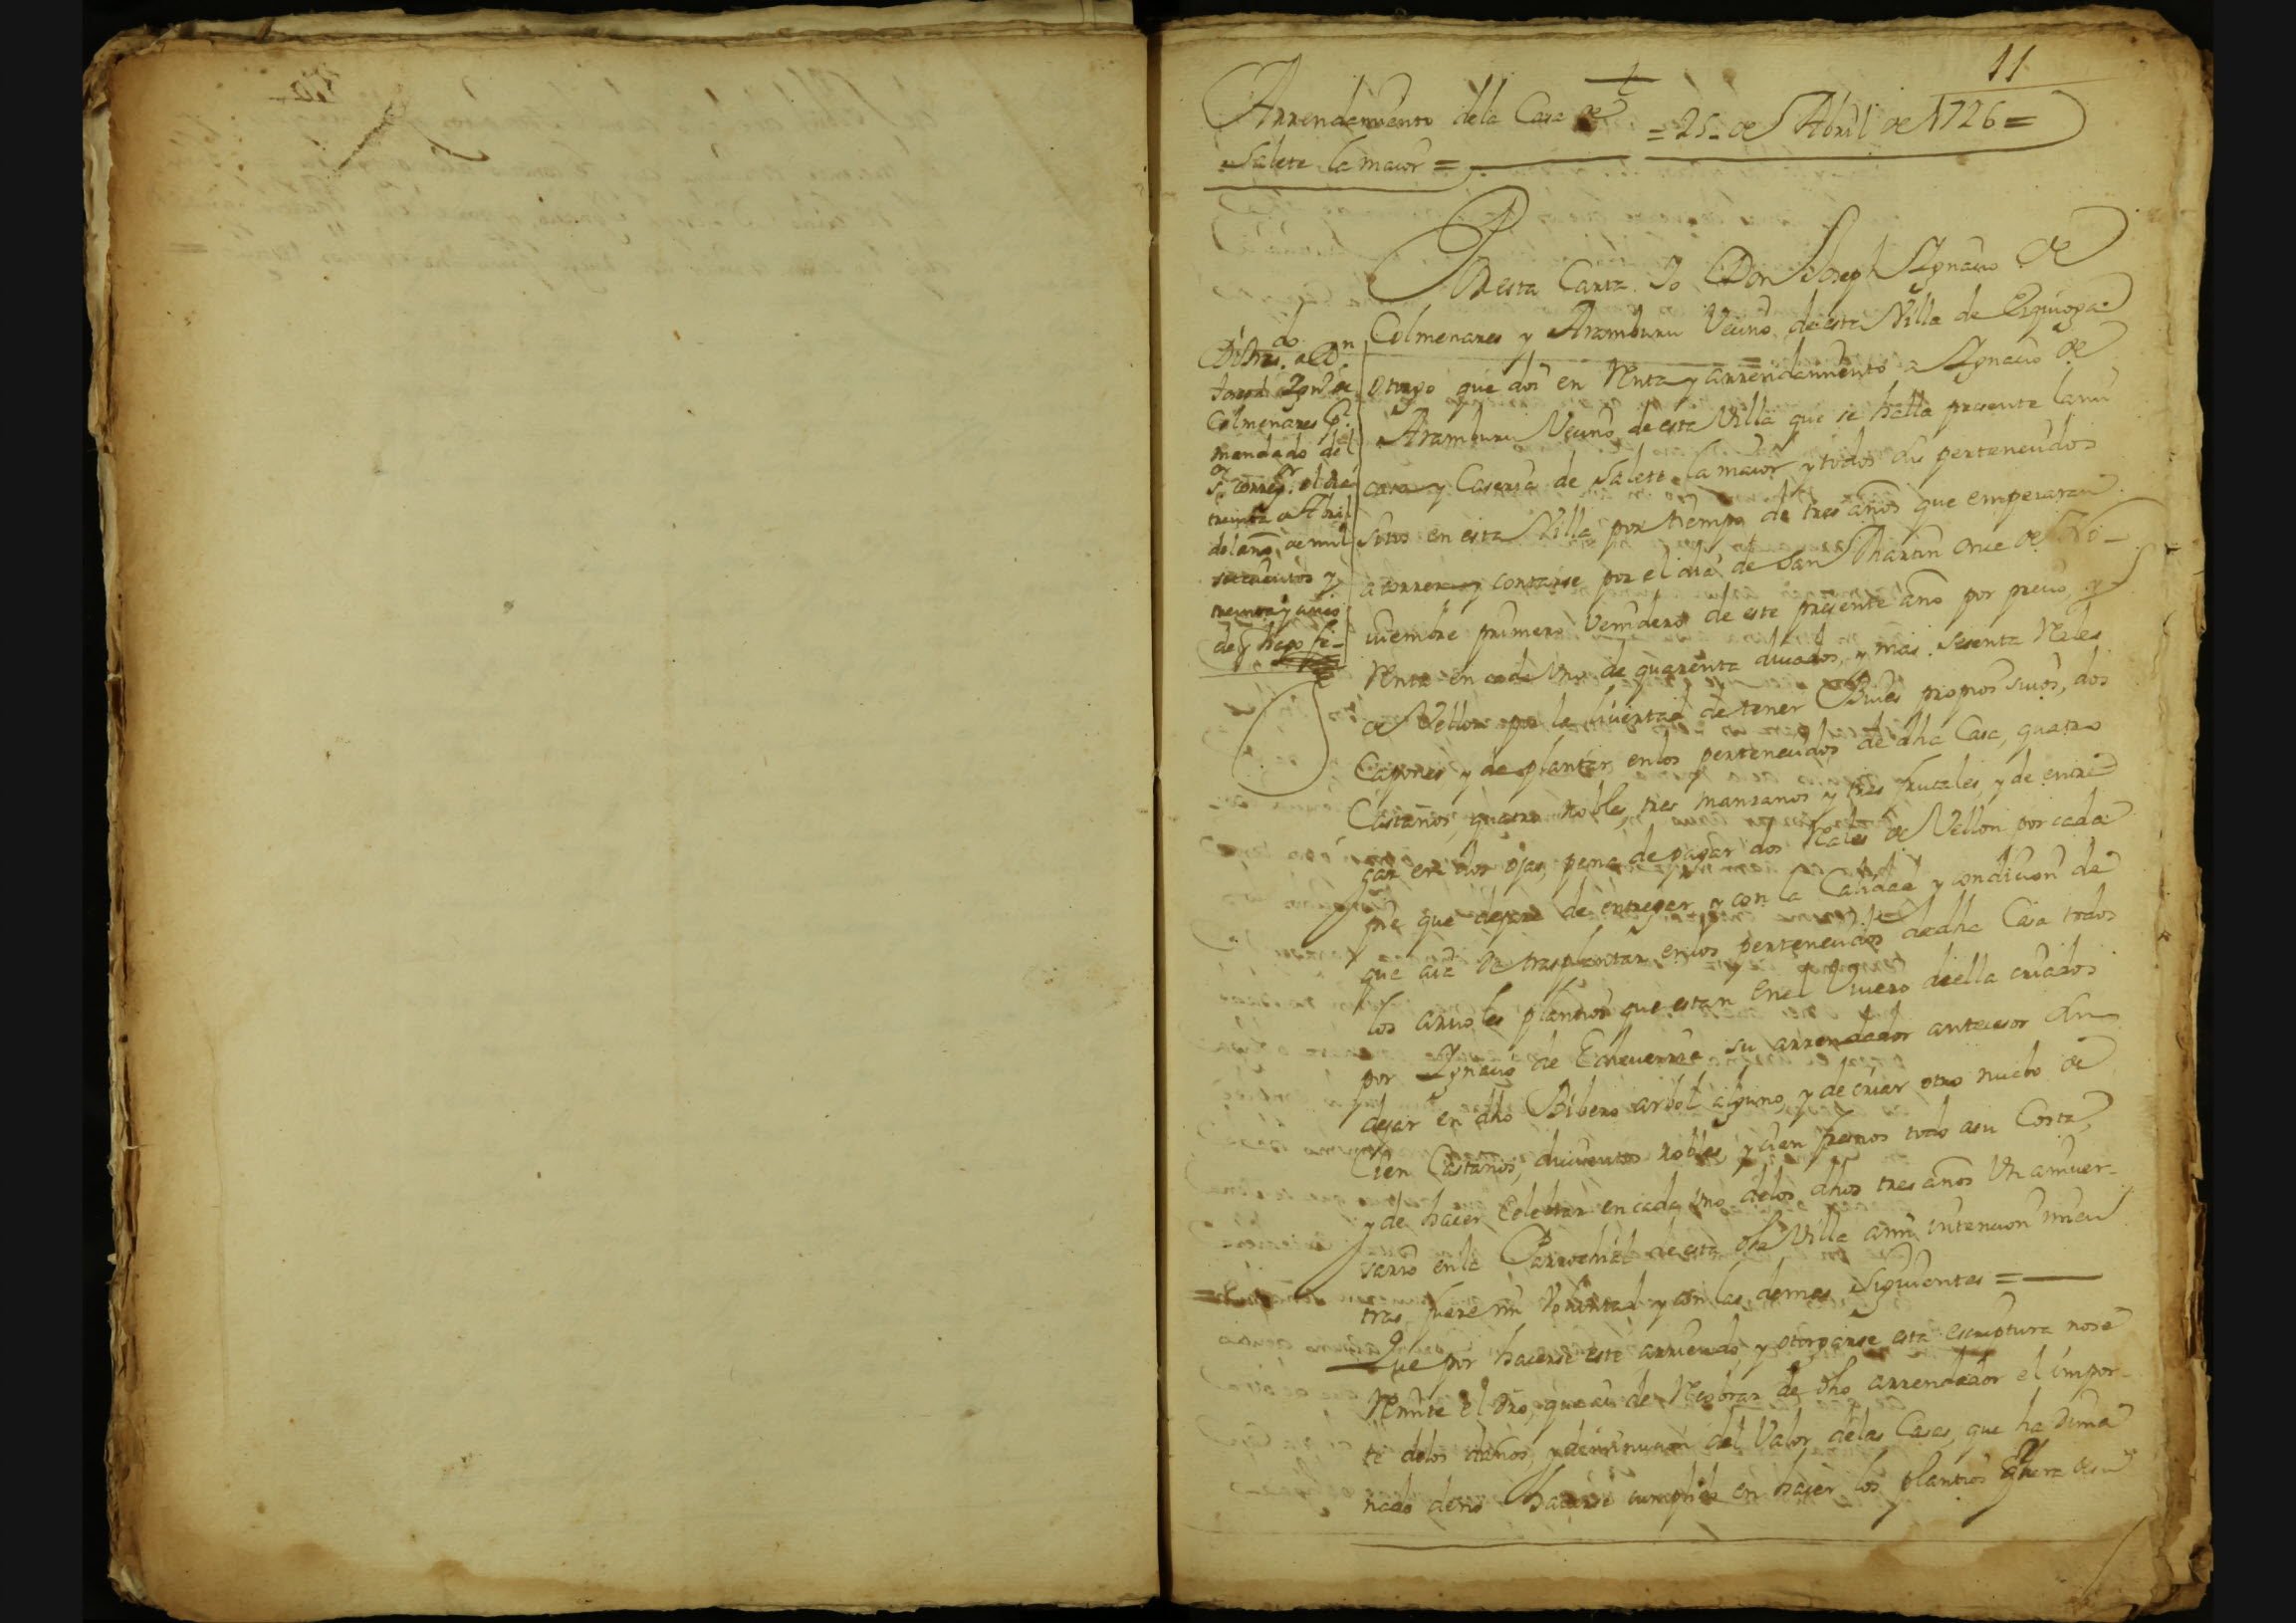 11
Arrendamiento dela Casa de
Salete la maior =
= 25 - de Abril de 1726 =
Por esta Carta Yo Don Joseph Ygnacio de
Colmenares y Aramburu Vecino de esta Villa de
otorgo que doi en Renta y arrendamiento a Ygnacio de
Aramburu Vecino de esta Villa que se halla presente la mi
casa y Caseria de Salete la maior y todos sus pertenecidos
sitos en esta Villa por tiempo de tres años que empezaran
a correr y contarse por el dia de San Martin once de No-
viembre primero Venidero de este presente año por precio, y
Renta en cada Uno de quarenta ducados, y mas sesenta Reales
de Vellon por la livertad de tener Bueies propios suios, dos
Capones, y de plantar en los pertenecidos de dha Casa, quatro
Castaños, quatro robles, tres manzanos y tres frutales, y de entre
gar en dos ojas, pena de pagar dos Reales de Vellon por cada
pie que dejare de entregar y con la Calidad y condicion de
que aia de trasplantar en los pertenecidos de dha Casa todos
los arvoles plantios que estan en el Vivero de ella criados
por Ygnacio de Echeverria su arrendador antecesor sin
dejar en dho Bibero arbol alguno, y de criar otro nuebo de
Cien Castaños, ducientos robles, y cien fresnos todo a su Costa,
y de hacer Celebrar en cada Uno delos dhos tres años Un aniver-
sario en la Parrochial de esta dha Villa a mi intencion mien
tras fuere mi Voluntad y con las demas Siguientes =
Que por hacerse este arriendo y otorgarse esta escriptura no se
Remite el dro, que ai de Recobrar de dho arrendador el impor-
te delos daños, y deminucion del Valor delas Casas, que ha dima
nado de no haverse cumplido en hacer los plantios
Joseph Ygn.º de
Colmenares Pr.
mandado del
sr correg.or el dia
treinta de Abril
del año de mil
setecientos y
treinta y cinco
de q hago fe -